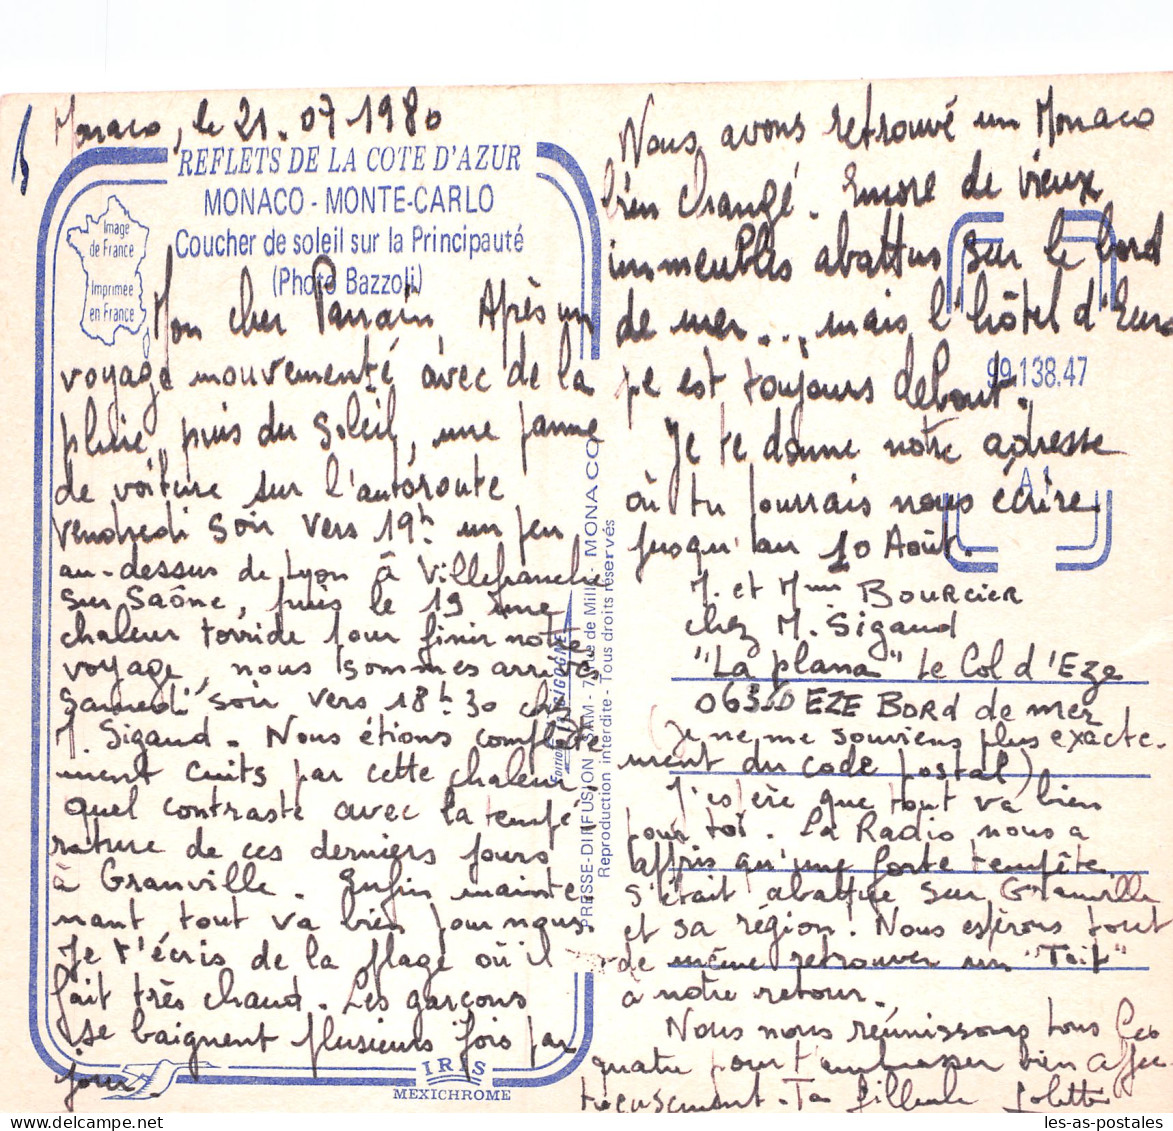 Monaco, le 21.07.1980
REFLETS DE LA COTE D'AZUR
MONACO - MONTE-CARLO
Coucher de soleil sur la Principauté
(Photo Bazzoli)
Image
de France
Imprimée
en France
Mon cher Parrain, Après un
voyage mouvementé avec de la
pluie, puis du soleil, une panne
de voiture sur l'autoroute
vendredi soir vers 19h un peu
au-dessus de Lyon à Villefranche
sur Saône, puis le 19 une
chaleur torride pour finir notre
voyage, nous sommes arrivés
samedi soir vers 18h30 chez
M. Sigaud. Nous étions complète
ment cuits par cette chaleur,
quel contraste avec la tempé
rature de ces derniers jours
à Granville. Enfin mainte
nant tout va bien pour nous.
Je t'écris de la plage où il
fait très chaud. Les garçons
se baignent plusieurs fois par
jour.
IRIS
MEXICHROME
PRESSE-DIFFUSION SAM - 7, rue de Millo - MONACO
Reproduction interdite - Tous droits réservés
Nous avons retrouvé un Monaco
bien changé. Encore de vieux
immeubles abattus sur le bord
de mer... mais l'hôtel d'Euro
pe est toujours debout.
99.138.47
Je te donne notre adresse
A 1
où tu pourrais nous écrire
jusqu'au 10 Août.
M. et Mme BOURCIER
chez M. Sigaud
"La plana" Le Col d'Eze
06360 EZE BORD de mer
Je ne me souviens plus exacte-
ment du code postal)
J'espère que tout va bien
pour toi. La Radio nous a
appris qu'une forte tempête
s'était abattue sur Granville
et sa région. Nous espérons tout
de même retrouver un "Toit"
à notre retour.
Nous nous réunissons tous les
quatre pour t'embrasser bien affec
tueusement. Ta filleule